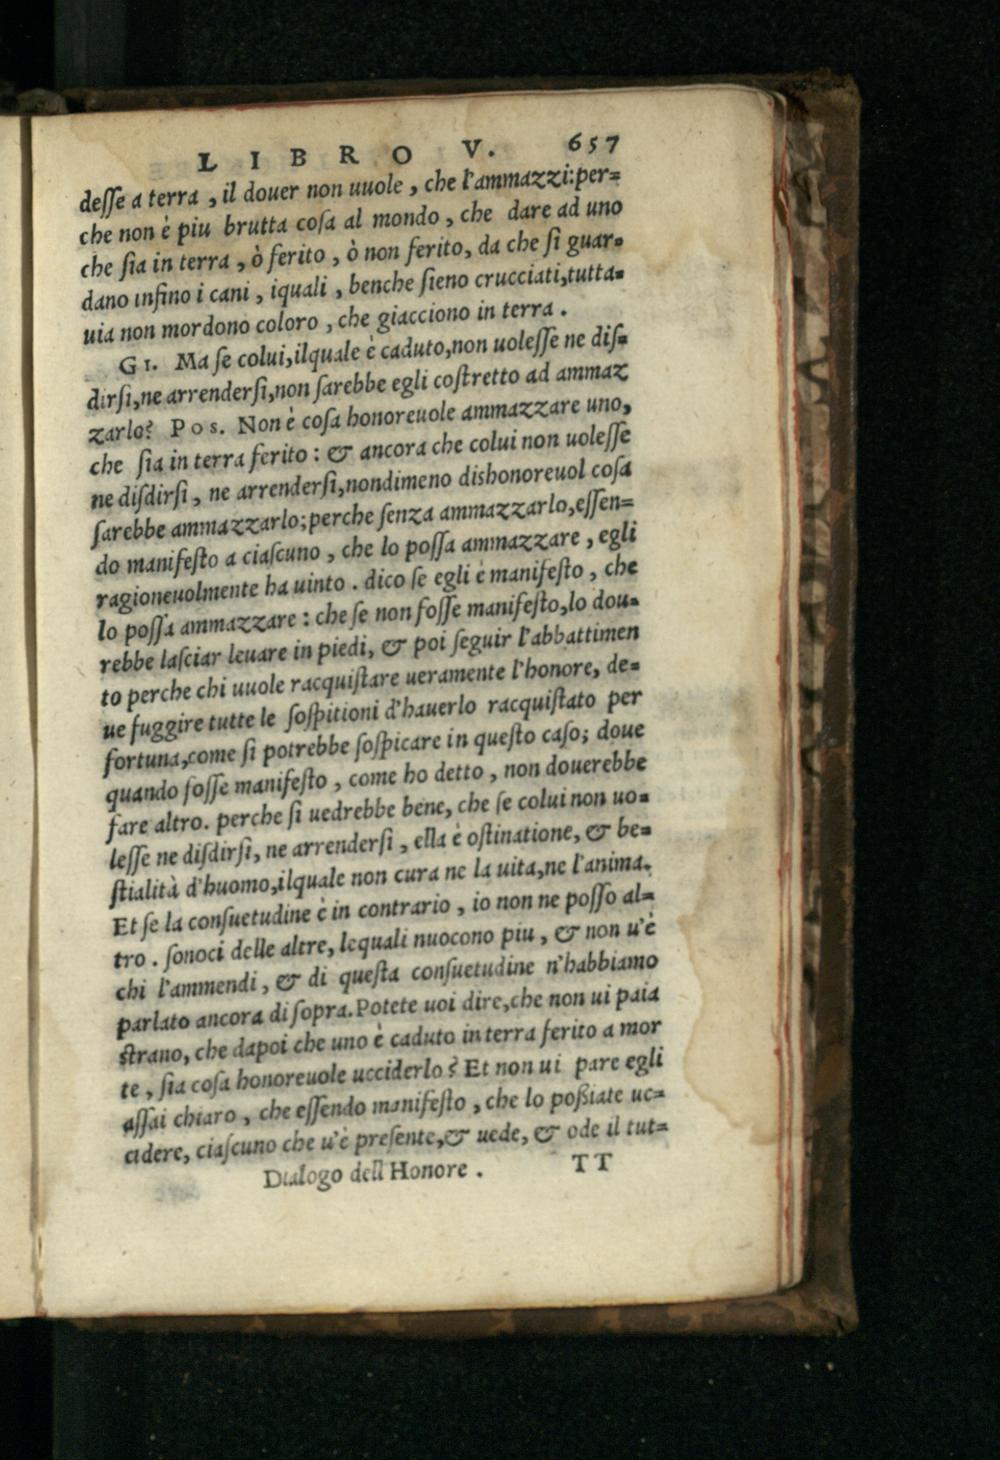 LIBRO V. 657
deſſe a terra, il douer non uuole, che l'ammazzi: per-
che non è piu brutta coſa al mondo, che dare ad uno
che ſia in terra, ò ferito, ò non ferito, da che ſi guar-
dano infino i cani, iquali, benche ſieno crucciati, tutta-
uia non mordono coloro, che giacciono in terra.
GI. Ma ſe colui, ilquale è caduto, non uoleſſe ne diſ-
dirſi, ne arrenderſi, non ſarebbe egli coſtretto ad ammaz
zarlo? Pos. Non è coſa honoreuole ammazzare uno,
che ſia in terra ferito: & ancora che colui non uoleſſe
ne diſdirſi, ne arrenderſi, nondimeno dishonoreuol coſa
ſarebbe ammazzarlo; perche ſenza ammazzarlo, eſſen-
do manifeſto a ciaſcuno, che lo poſſa ammazzare, egli
ragioneuolmente ha uinto. dico ſe egli è manifeſto, che
lo poſſa ammazzare: che ſe non foſſe manifeſto, lo dou-
rebbe laſciar leuare in piedi, & poi ſeguir l'abbattimen
to perche chi uuole racquiſtare ueramente l'honore, de-
ue fuggire tutte le ſoſpitioni d'hauerlo racquiſtato per
fortuna, come ſi potrebbe ſoſpicare in queſto caſo; doue
quando foſſe manifeſto, come ho detto, non douerebbe
fare altro. perche ſi uedrebbe bene, che ſe colui non uo-
leſſe ne diſdirſi, ne arrenderſi, ella è oſtinatione, & be-
ſtialità d'huomo, ilquale non cura ne la uita, ne l'anima.
Et ſe la conſuetudine è in contrario, io non ne poſſo al-
tro. ſonoci delle altre, lequali nuocono piu, & non u'è
chi l'ammendi, & di queſta conſuetudine n'habbiamo
parlato ancora di ſopra. Potete uoi dire, che non ui paia
ſtrano, che dapoi che uno è caduto in terra ferito a mor
te, ſia coſa honoreuole ucciderlo? Et non ui pare egli
aſſai chiaro, che eſſendo manifeſto, che lo poßiate uc-
cidere, ciaſcuno che u'è preſente, & uede, & ode il tut-
Dialogo dell Honore. TT